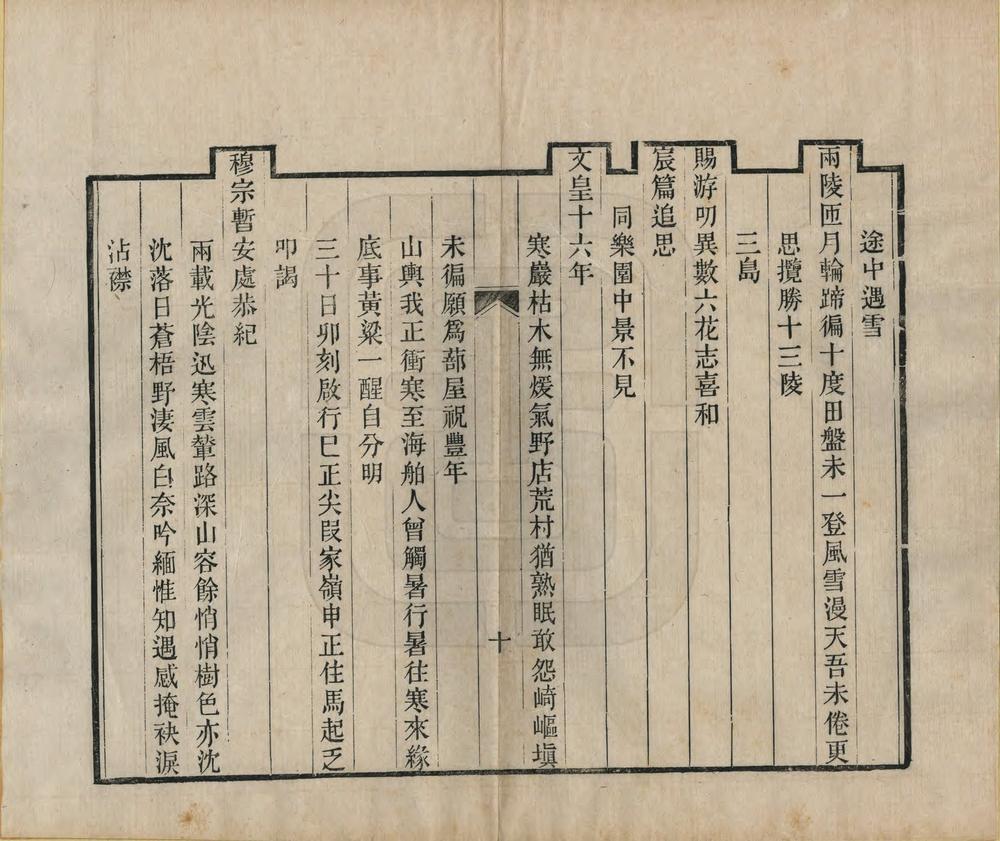 途中遇雪
兩陵匝月輪蹄徧十度田盤未一登風雪漫天吾未倦更
思攬勝十三陵
三島
賜游叨異數六花志喜和
宸篇追思
同樂園中景不見
文皇十六年
寒巖枯木無煖氣野店荒村猶熟眠敢怨崎嶇塡
十
未徧願爲蔀屋祝豐年
山輿我正衝寒至海舶人曾觸暑行暑往寒來緣
底事黃粱一醒自分明
三十日卯刻啟行巳正尖段家嶺申正住馬起乏
叩謁
穆宗暫安處恭紀
兩載光陰迅寒雲輦路深山容餘悄悄樹色亦沈
沈落日蒼梧野淒風白奈吟緬惟知遇感掩袂淚
沾襟